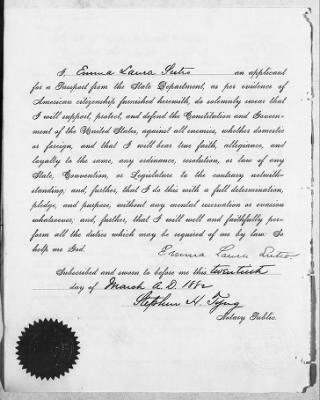 I, Emma Laura Sutro an applicant
for a Passport from the State Department, as per evidence of
American citizenship furnished herewith, do solemnly swear that
I will support, protect, and defend the Constitution and Govern-
ment of the United States, against all enemies, whether domestic
or foreign, and that I will bear true faith, allegiance, and
loyalty to the same, any ordinance, resolution, or law of any
State, Convention, or Legislature to the contrary notwith-
standing; and, further, that I do this with a full determination,
pledge, and purpose, without any mental reservation or evasion
whatsoever; and, further, that I will well and faithfully per-
form all the duties which may be required of me by law: So
help me God.
Emma Laura Sutro
Subscribed and sworn to before me this twentieth
day of March A.D. 1882
Stephen H. Tyng
Notary Public.